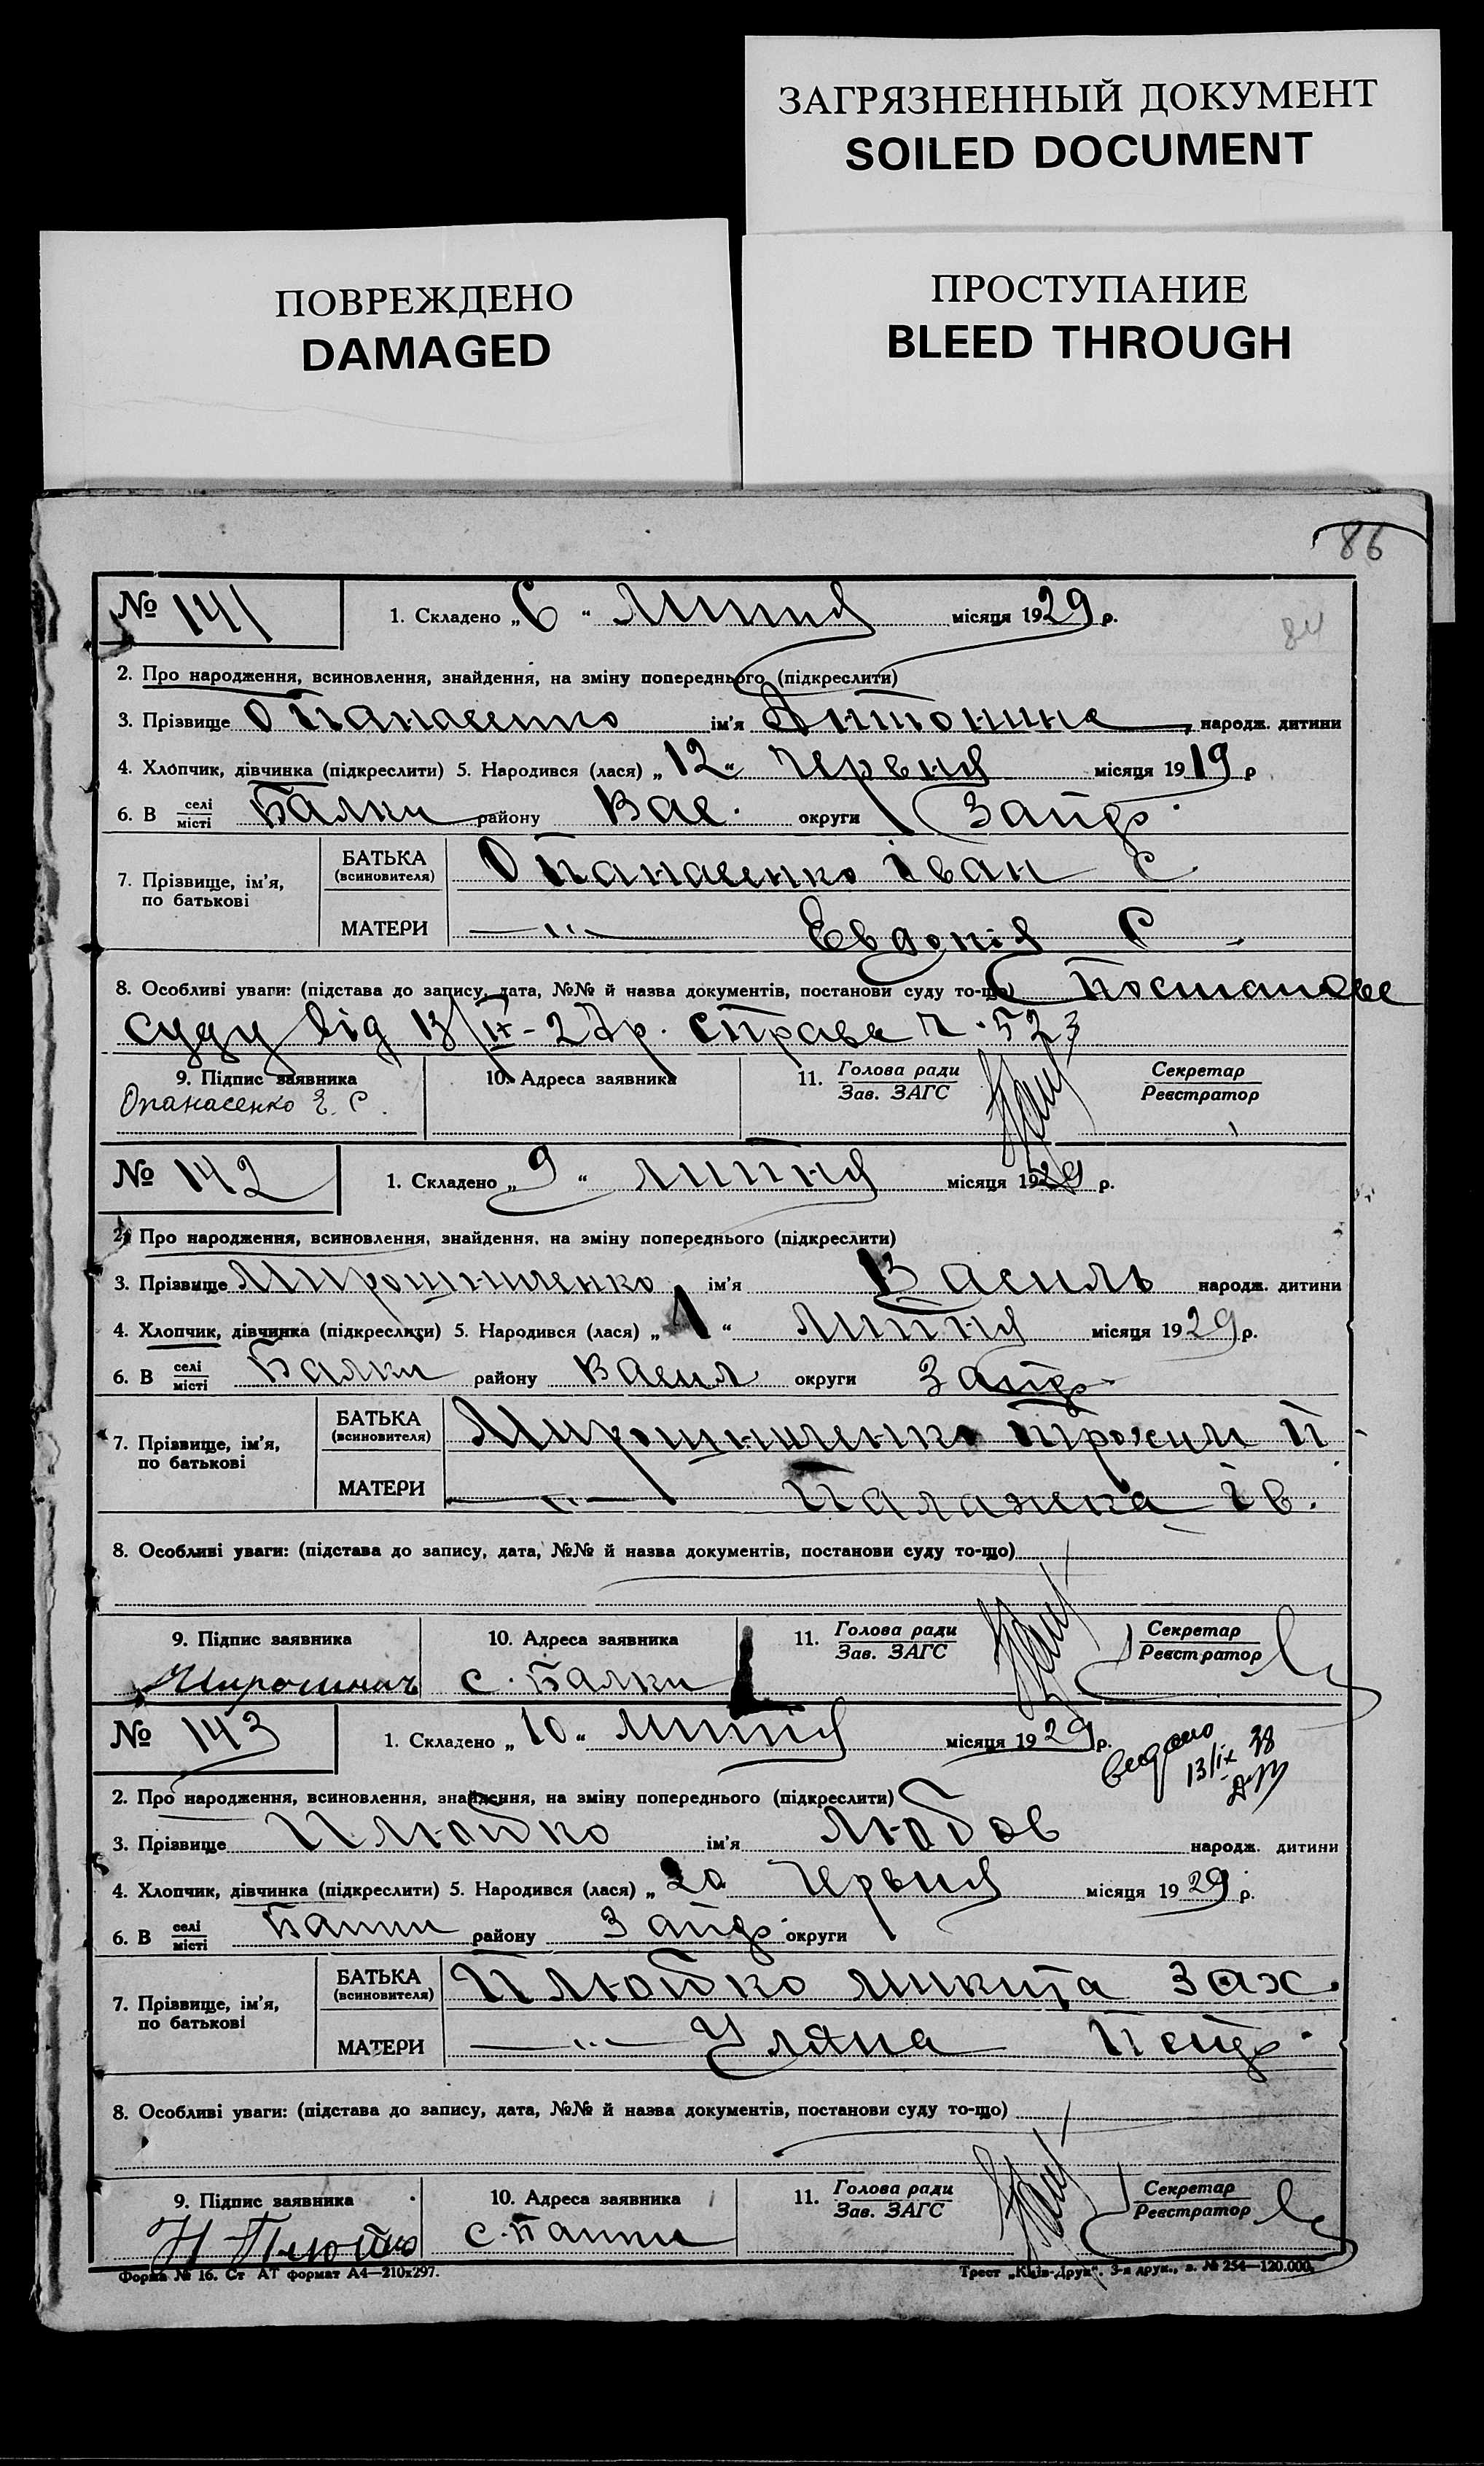 ЗАГРЯЗНЕННЫЙ ДОКУМЕНТ
SOILED DOCUMENT
ПОВРЕЖДЕНО
DAMAGED
ПРОСТУПАНИЕ
BLEED THROUGH
86
84
№ 141 1. Складено „6“ Липня місяця 1929 р.
2. Про народження, всиновлення, знайдення, на зміну попереднього (підкреслити)
3. Прізвище Опанасенко ім'я Антонина народж. дитини
4. Хлопчик, дівчинка (підкреслити) 5. Народився (лася) „12“ Червня місяця 1919 р
6. В селі/місті Балки району Вас. округи Запор.
7. Прізвище, ім'я, по батькові
БАТЬКА (всиновителя) Опанасенко Іван С.
МАТЕРИ —"— Евдокія С.
8. Особливі уваги: (підстава до запису, дата, №№ й назва документів, постанови суду то-що) Постанова
суду від 13/IX-27р. справа ч. 523
9. Підпис заявника 10. Адреса заявника 11. Голова ради/Зав. ЗАГС Секретар/Реєстратор
Опанасенко Е. С.
№ 142 1. Складено „9“ липня місяця 1929 р.
2. Про народження, всиновлення, знайдення, на зміну попереднього (підкреслити)
3. Прізвище Мирошниченко ім'я Василь народж. дитини
4. Хлопчик, дівчинка (підкреслити) 5. Народився (лася) „1“ Липня місяця 1929 р.
6. В селі/місті Балки району Васил округи Запор
7. Прізвище, ім'я, по батькові
БАТЬКА (всиновителя) Мирошниченко Трохим П
МАТЕРИ —"— Палажка Ів.
8. Особливі уваги: (підстава до запису, дата, №№ й назва документів, постанови суду то-що)
9. Підпис заявника 10. Адреса заявника 11. Голова ради/Зав. ЗАГС Секретар/Реєстратор
с. Балки
№ 143 1. Складено „10“ липня місяця 1929 р.
видано 13/IX 38
2. Про народження, всиновлення, знайдення, на зміну попереднього (підкреслити)
3. Прізвище Плютко ім'я Любов народж. дитини
4. Хлопчик, дівчинка (підкреслити) 5. Народився (лася) „20 Червня місяця 1929 р.
6. В селі/місті Балки району Запор. округи
7. Прізвище, ім'я, по батькові
БАТЬКА (всиновителя) Плютко микита Зах.
МАТЕРИ —"— Уляна Петр.
8. Особливі уваги: (підстава до запису, дата, №№ й назва документів, постанови суду то-що)
9. Підпис заявника 10. Адреса заявника 11. Голова ради/Зав. ЗАГС Секретар/Реєстратор
Н Плютко с. Балки
Форма № 16. Ст АТ формат А4—210х297. Трест „Київ-Друк“. 3-я друк., з. № 254—120.000.